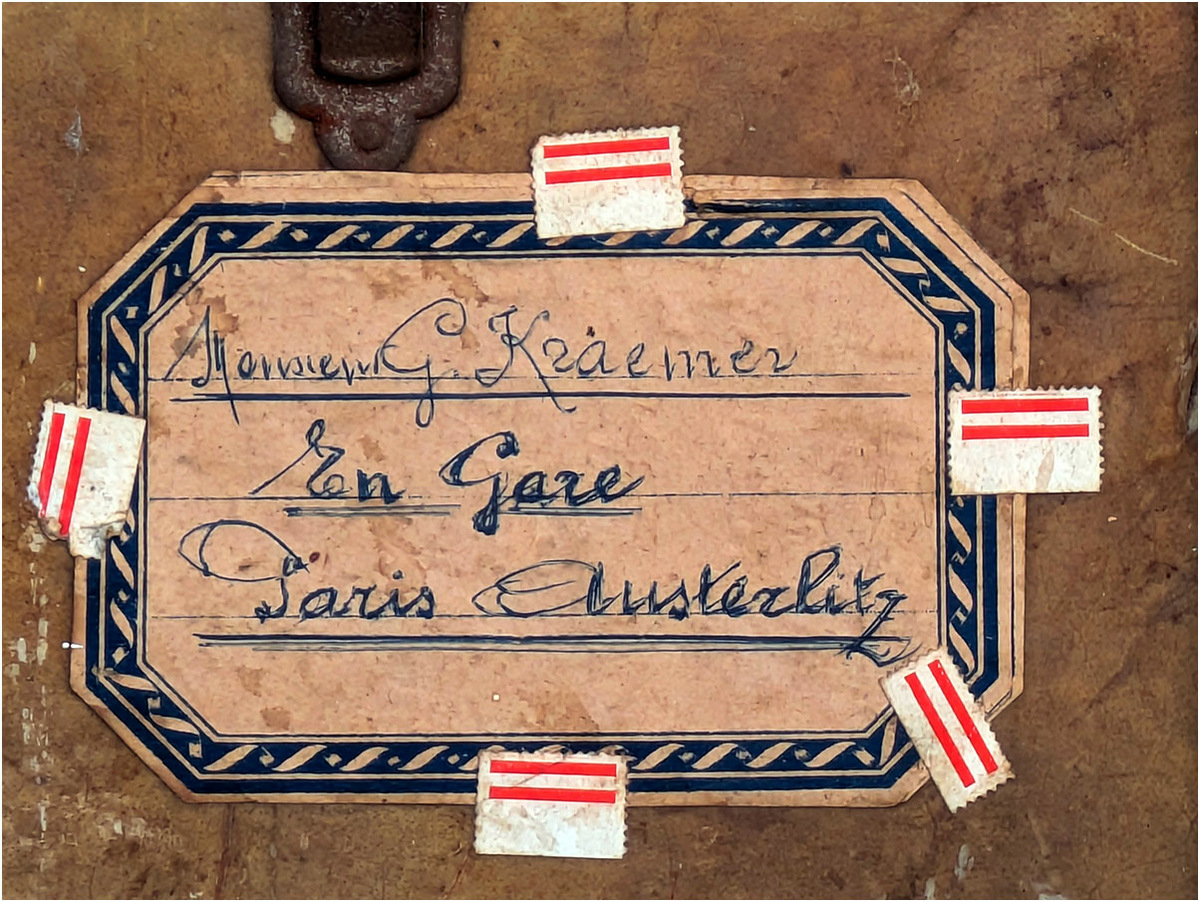 Monsieur G. Kraemer
En Gare
Paris Austerlitz